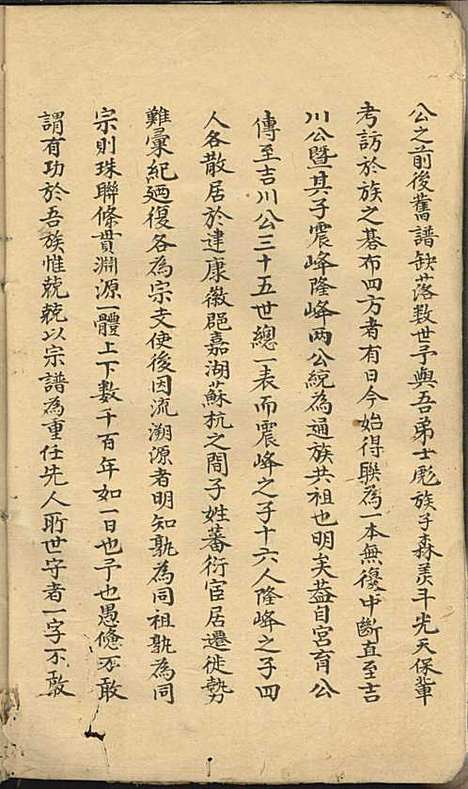 公之前後舊譜缺落数世予與吾弟士彪族子森羙斗光天保輩
考訪於族之碁布四方者有日今始得聯為一本無復中斷直至吉
川公暨其子震峰隆峰两公統為通族共祖也明矣葢自宮育公
傳至吉川公三十五世總一表而震峰之子十六人隆峰之子四
人各散居於建康徽郡嘉湖蘇杭之間子姓蕃衍宦居遷徙勢
難彙紀廼復各為宗支使後因流溯源者明知孰為同祖孰為同
宗則珠聯條貫淵源一體上下数千百年如一日也予也愚憊不敢
謂有功於吾族惟兢兢以宗譜為重任先人所世守者一字不敢